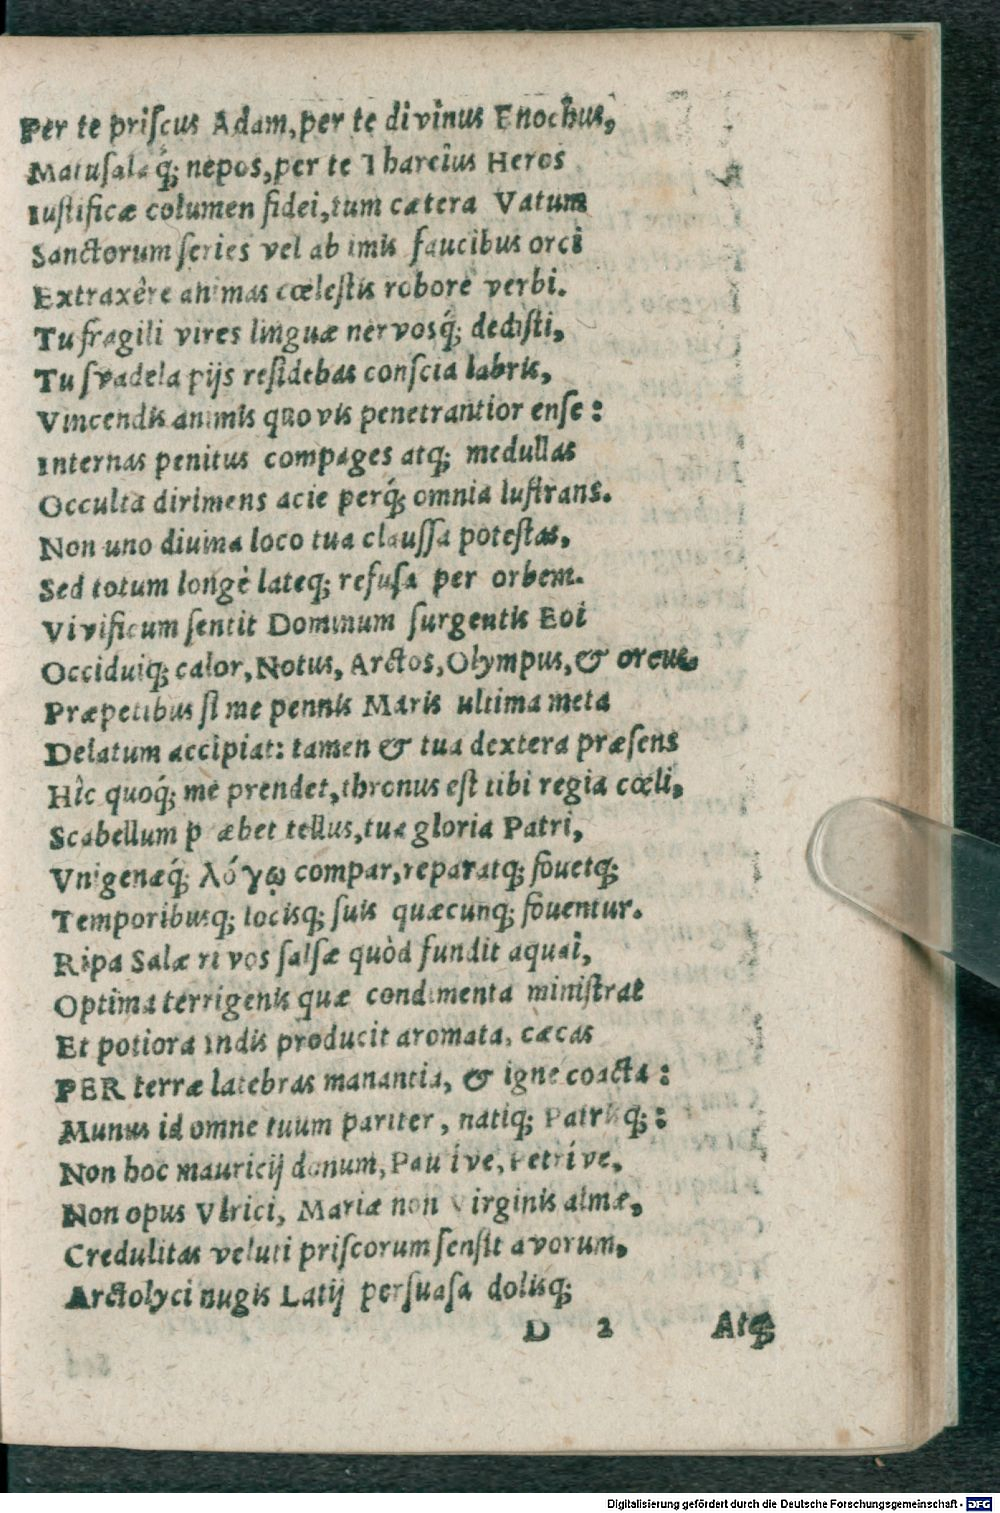 Per te priſcus Adam, per te divinus Enochus,
Matuſalaq́; nepos, per te Thareius Heros
Iuſtificæ columen fidei, tum cætera Vatum
Sanctorum ſeries vel ab imis faucibus orci
Extraxêre animas cœleſtis robore verbi.
Tu fragili vires linguæ nervosq́; dediſti,
Tu ſvadela pijs reſidebas conſcia labris,
Vincendis animis quovis penetrantior enſe:
Internas penitus compages atq; medullas
Occulta dirimens acie perq́; omnia luſtrans.
Non uno divina loco tua clauſſa poteſtas,
Sed totum longè lateq; refuſa per orbem.
Vivificum ſentit Dominum ſurgentis Eoi
Occiduiq; calor, Notus, Arctos, Olympus, & orcus.
Præpetibus ſi me pennis Maris ultima meta
Delatum accipiat: tamen & tua dextera præſens
Hîc quoq́; me prendet, thronus eſt tibi regia cœli,
Scabellum p æbet tellus, tua gloria Patri,
Vnigenæq́; λόγῳ compar, reparatq; fovetq;
Temporibusq; locisq; ſuis quæcunq; foventur.
Ripa Salæ rivos ſalſæ quòd fundit aquai,
Optima terrigenis quæ condimenta miniſtrat
Et potiora Indis producit aromata, cæcas
PER terræ latebras manantia, & igne coacta:
Munus id omne tuum pariter, natiq; Patrisq;:
Non hoc mauricij donum, Pauli ve, Petri ve,
Non opus Vlrici, Mariæ non Virginis almæ,
Credulitas veluti priſcorum ſenſit avorum,
Arctolyci nugis Latij perſuaſa dolisq;
D 2 Atq;
Digitalisierung gefördert durch die Deutsche Forschungsgemeinschaft - DFG